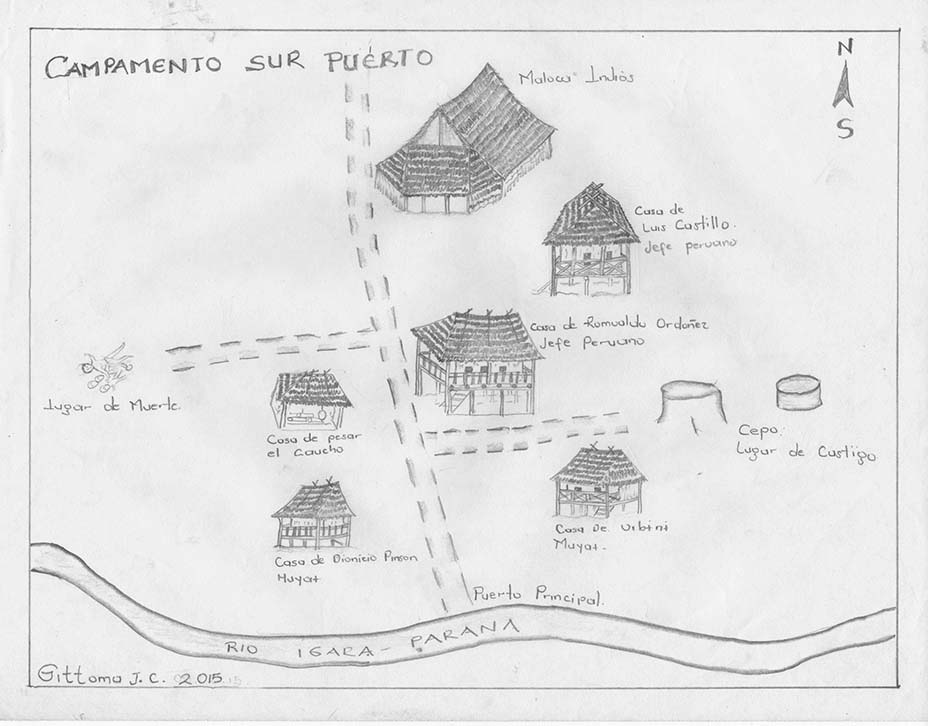 CAMPAMENTO SUR PUÉRTO
N
S
Maloca Indiós
Casa de
Luis Castillo.
Jefe peruano
Casa de Romualdo Ordoñez
Jefe Peruano
Lugar de Muerte.
Casa de pesar
el Caucho
Cepo.
Lugar de Castigo
Casa De Urbini
Muyat.
Casa de Dionicio Pinson
Muyat
Puerto Principal.
RIO IGARA-PARANA
Gittoma J.C. 2015